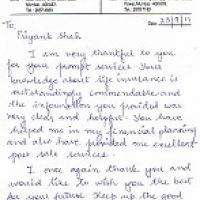 Date: 23/9/17
To,
Priyank Shah
I am very thankful to you
for your prompt services. Your
knowledge about life insurance is
outstandingly commendable and
the information you provided was
very clear and helpful. You have
helped me in my financial planning
and also have provided me excellent
post sale services.
I once again thank you and
would like to wish you the best
for your future. Keep up the good